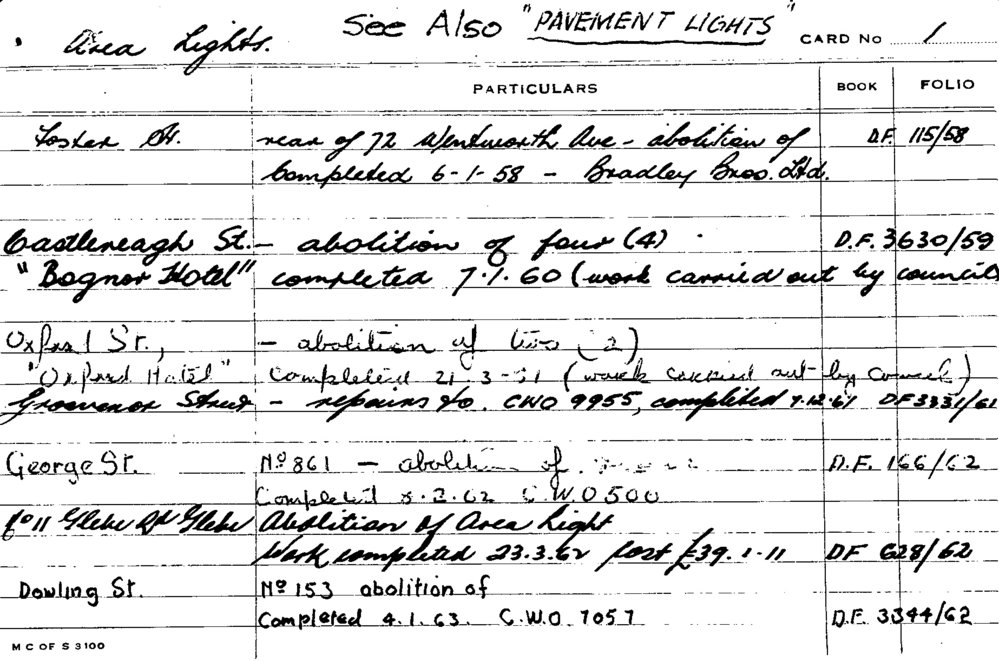 Area Lights. See Also "PAVEMENT LIGHTS" CARD No 1
PARTICULARS BOOK FOLIO
Foster St. rear of 72 Wentworth Ave - abolition of D.F. 115/58
Completed 6-1-58 - Bradley Bros. Ltd.
Castlereagh St. - abolition of four (4) D.F. 3630/59
"Bognor Hotel" completed 7.1.60 (work carried out by council)
Oxford St., - abolition of two (2)
"Oxford Hotel" Completed 21-3-61 (work carried out by Council)
Grosvenor Street - repairs to. CWO 9955, completed 7.12.61 DF3331/61
George St. No 861 - abolition of D.F. 166/62
Completed .2.62 C.W.O 500
No 11 Glebe Rd Glebe Abolition of Area Light
Work completed 23.3.62 Cost £39.1.11 DF 628/62
Dowling St. No 153 abolition of
Completed 4.1.63. C.W.O. 7057 D.F. 3344/62
M C OF S 3100